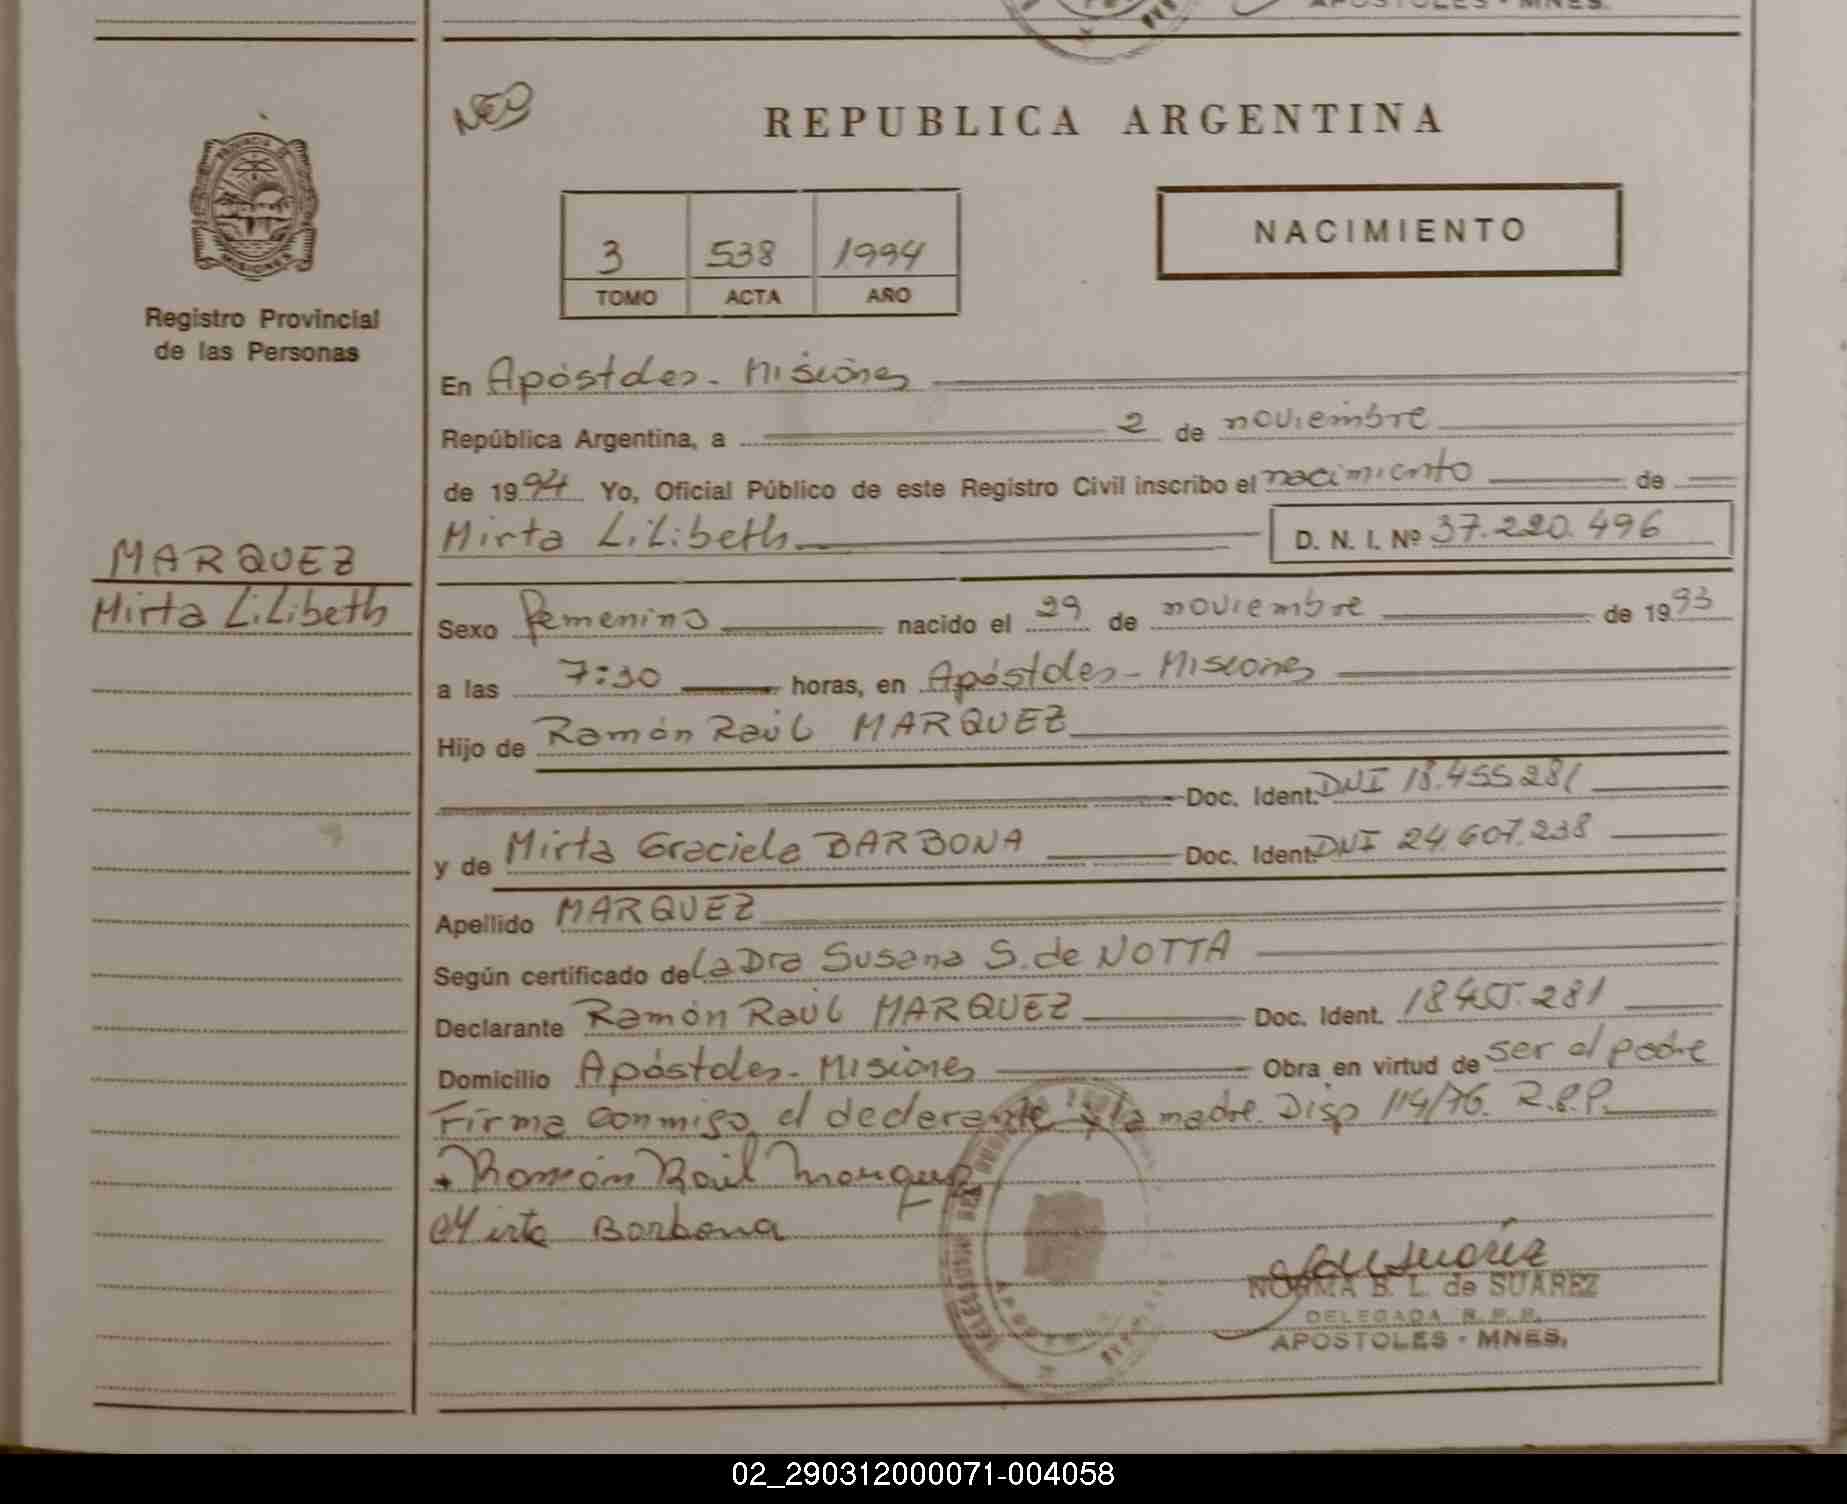 NEO
REPUBLICA ARGENTINA
3 538 1994
TOMO ACTA AÑO
NACIMIENTO
Registro Provincial
de las Personas
En Apóstoles - Misiones
República Argentina, a 2 de noviembre
de 1994 Yo, Oficial Público de este Registro Civil inscribo el nacimiento de
Mirta Lilibeth D. N. I. Nº 37.220.496
MARQUEZ
Mirta Lilibeth
Sexo femenino nacido el 29 de noviembre de 1993
a las 7:30 horas, en Apóstoles - Misiones
Hijo de Ramón Raúl MARQUEZ
Doc. Ident. DNI 18.455.281
y de Mirta Graciela BARBONA Doc. Ident. DNI 24.607.238
Apellido MARQUEZ
Según certificado de La Dra Susana S. de NOTTA
Declarante Ramón Raúl MARQUEZ Doc. Ident. 18.455.281
Domicilio Apóstoles - Misiones Obra en virtud de ser el padre
Firma conmigo el declarante y la madre. Disp 114/76. R.P.P.
Ramón Raúl Marquez
Mirta Barbona
NORMA B. L. de SUAREZ
DELEGADA R.P.P.
APOSTOLES - MNES.
02_290312000071-004058